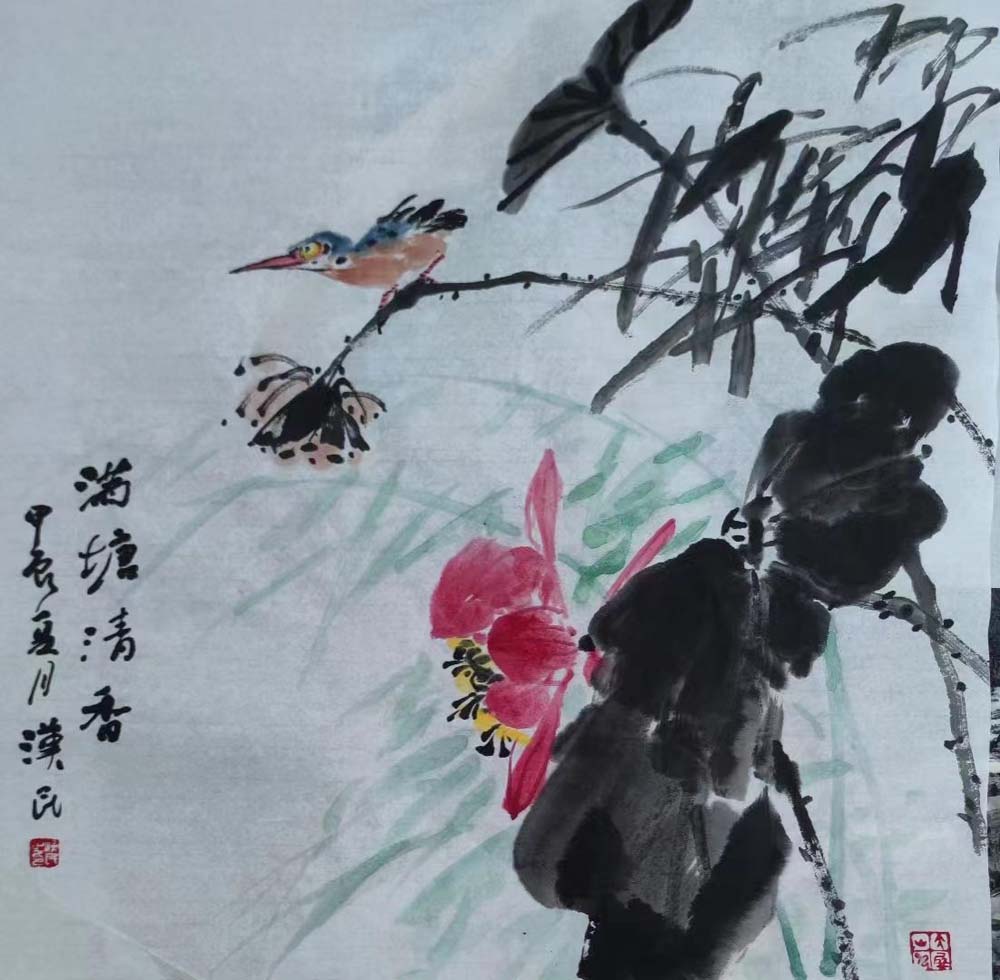 满塘清香
甲辰夏月
漢民